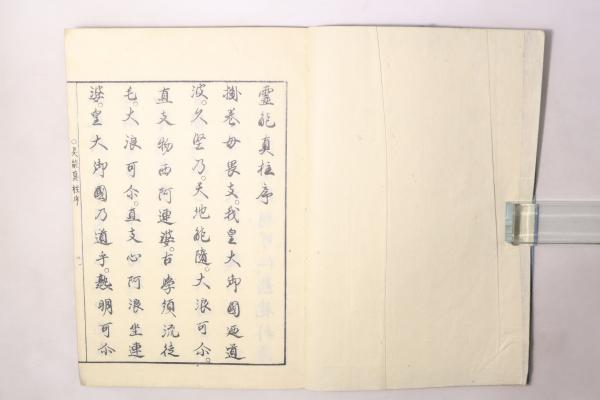 靈能真柱序
掛巻毋畏支。我皇大御國廼道
波。久堅乃。天地能隨。大浪可尒。
直支物而阿連婆。古學須流徒
毛。大浪可尒。直支心阿浪坐連
婆。皇大御國乃道乎。熟明可尒
○灵能真柱序